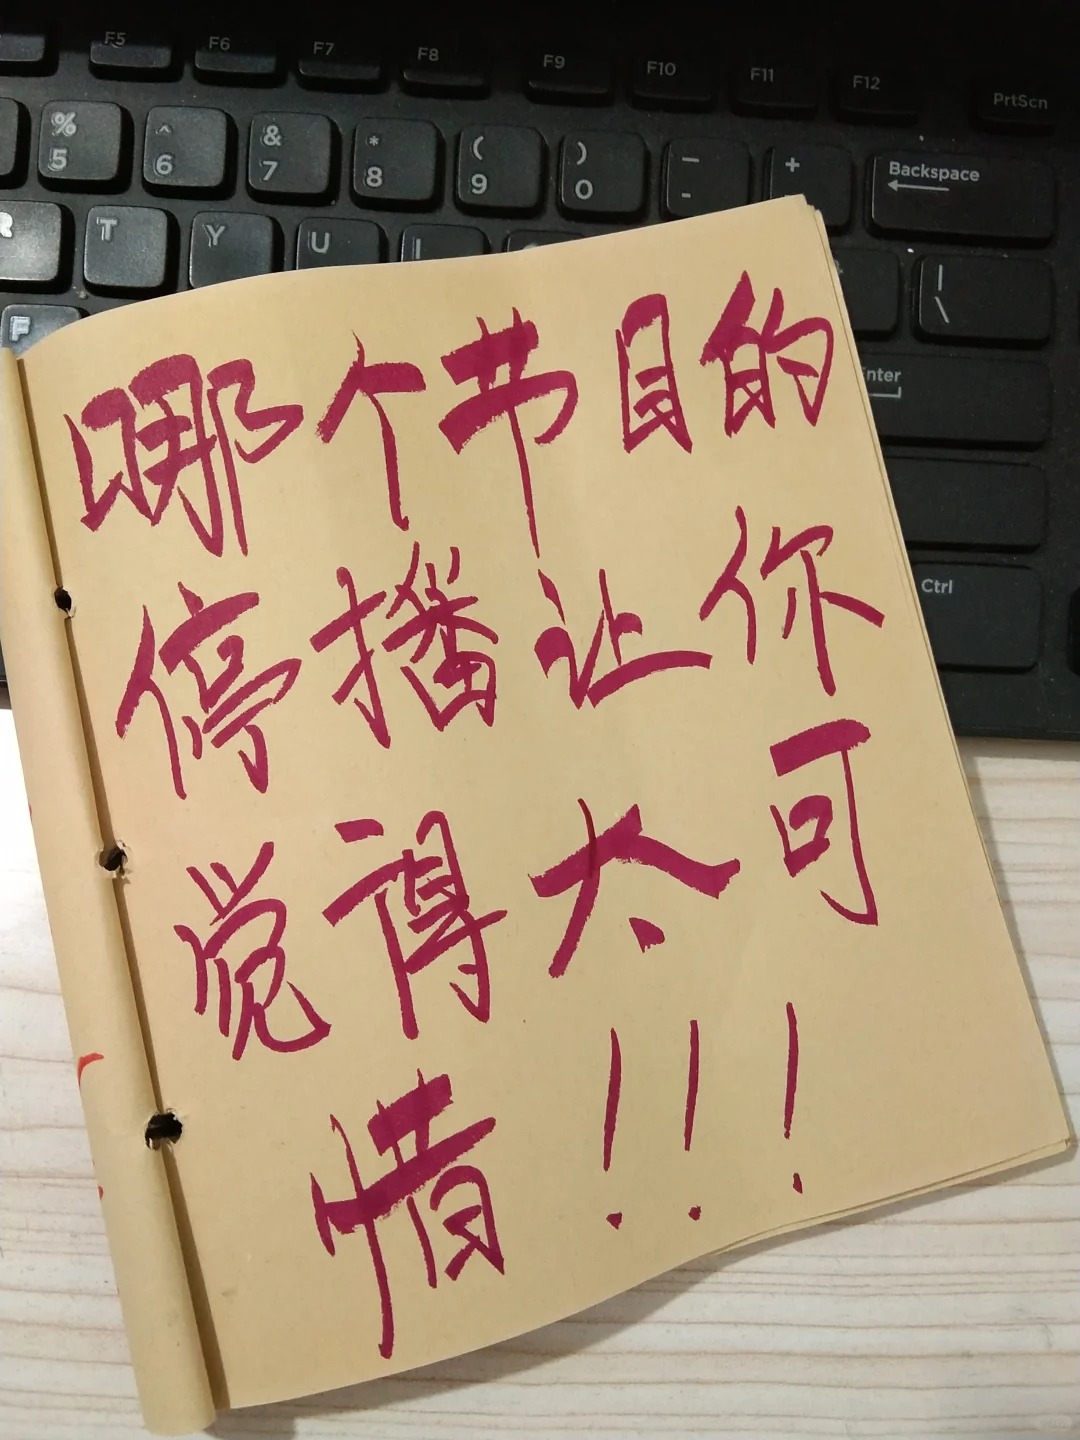 F5 F6 F7 F8 F9 F10 F11 F12 PrtScn
% ^ & * ( ) — + Backspace
5 6 7 8 9 0 -
R T Y U I |
\
F Enter
Ctrl
哪个节目的
停播让你
觉得太可
惜!!!